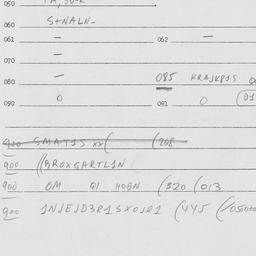 050
060 S+NALN-
061 — 062 —
070 —
080 — 085 KRAJKP1S
090 0 091 0 (D1
900 SMAT1S xx( (208
900 ((BROXGARTL1N
900 OM Q1 HOBN (520 (013
900 1NJEJD3R1SXOJR1 (VY5 (/05010